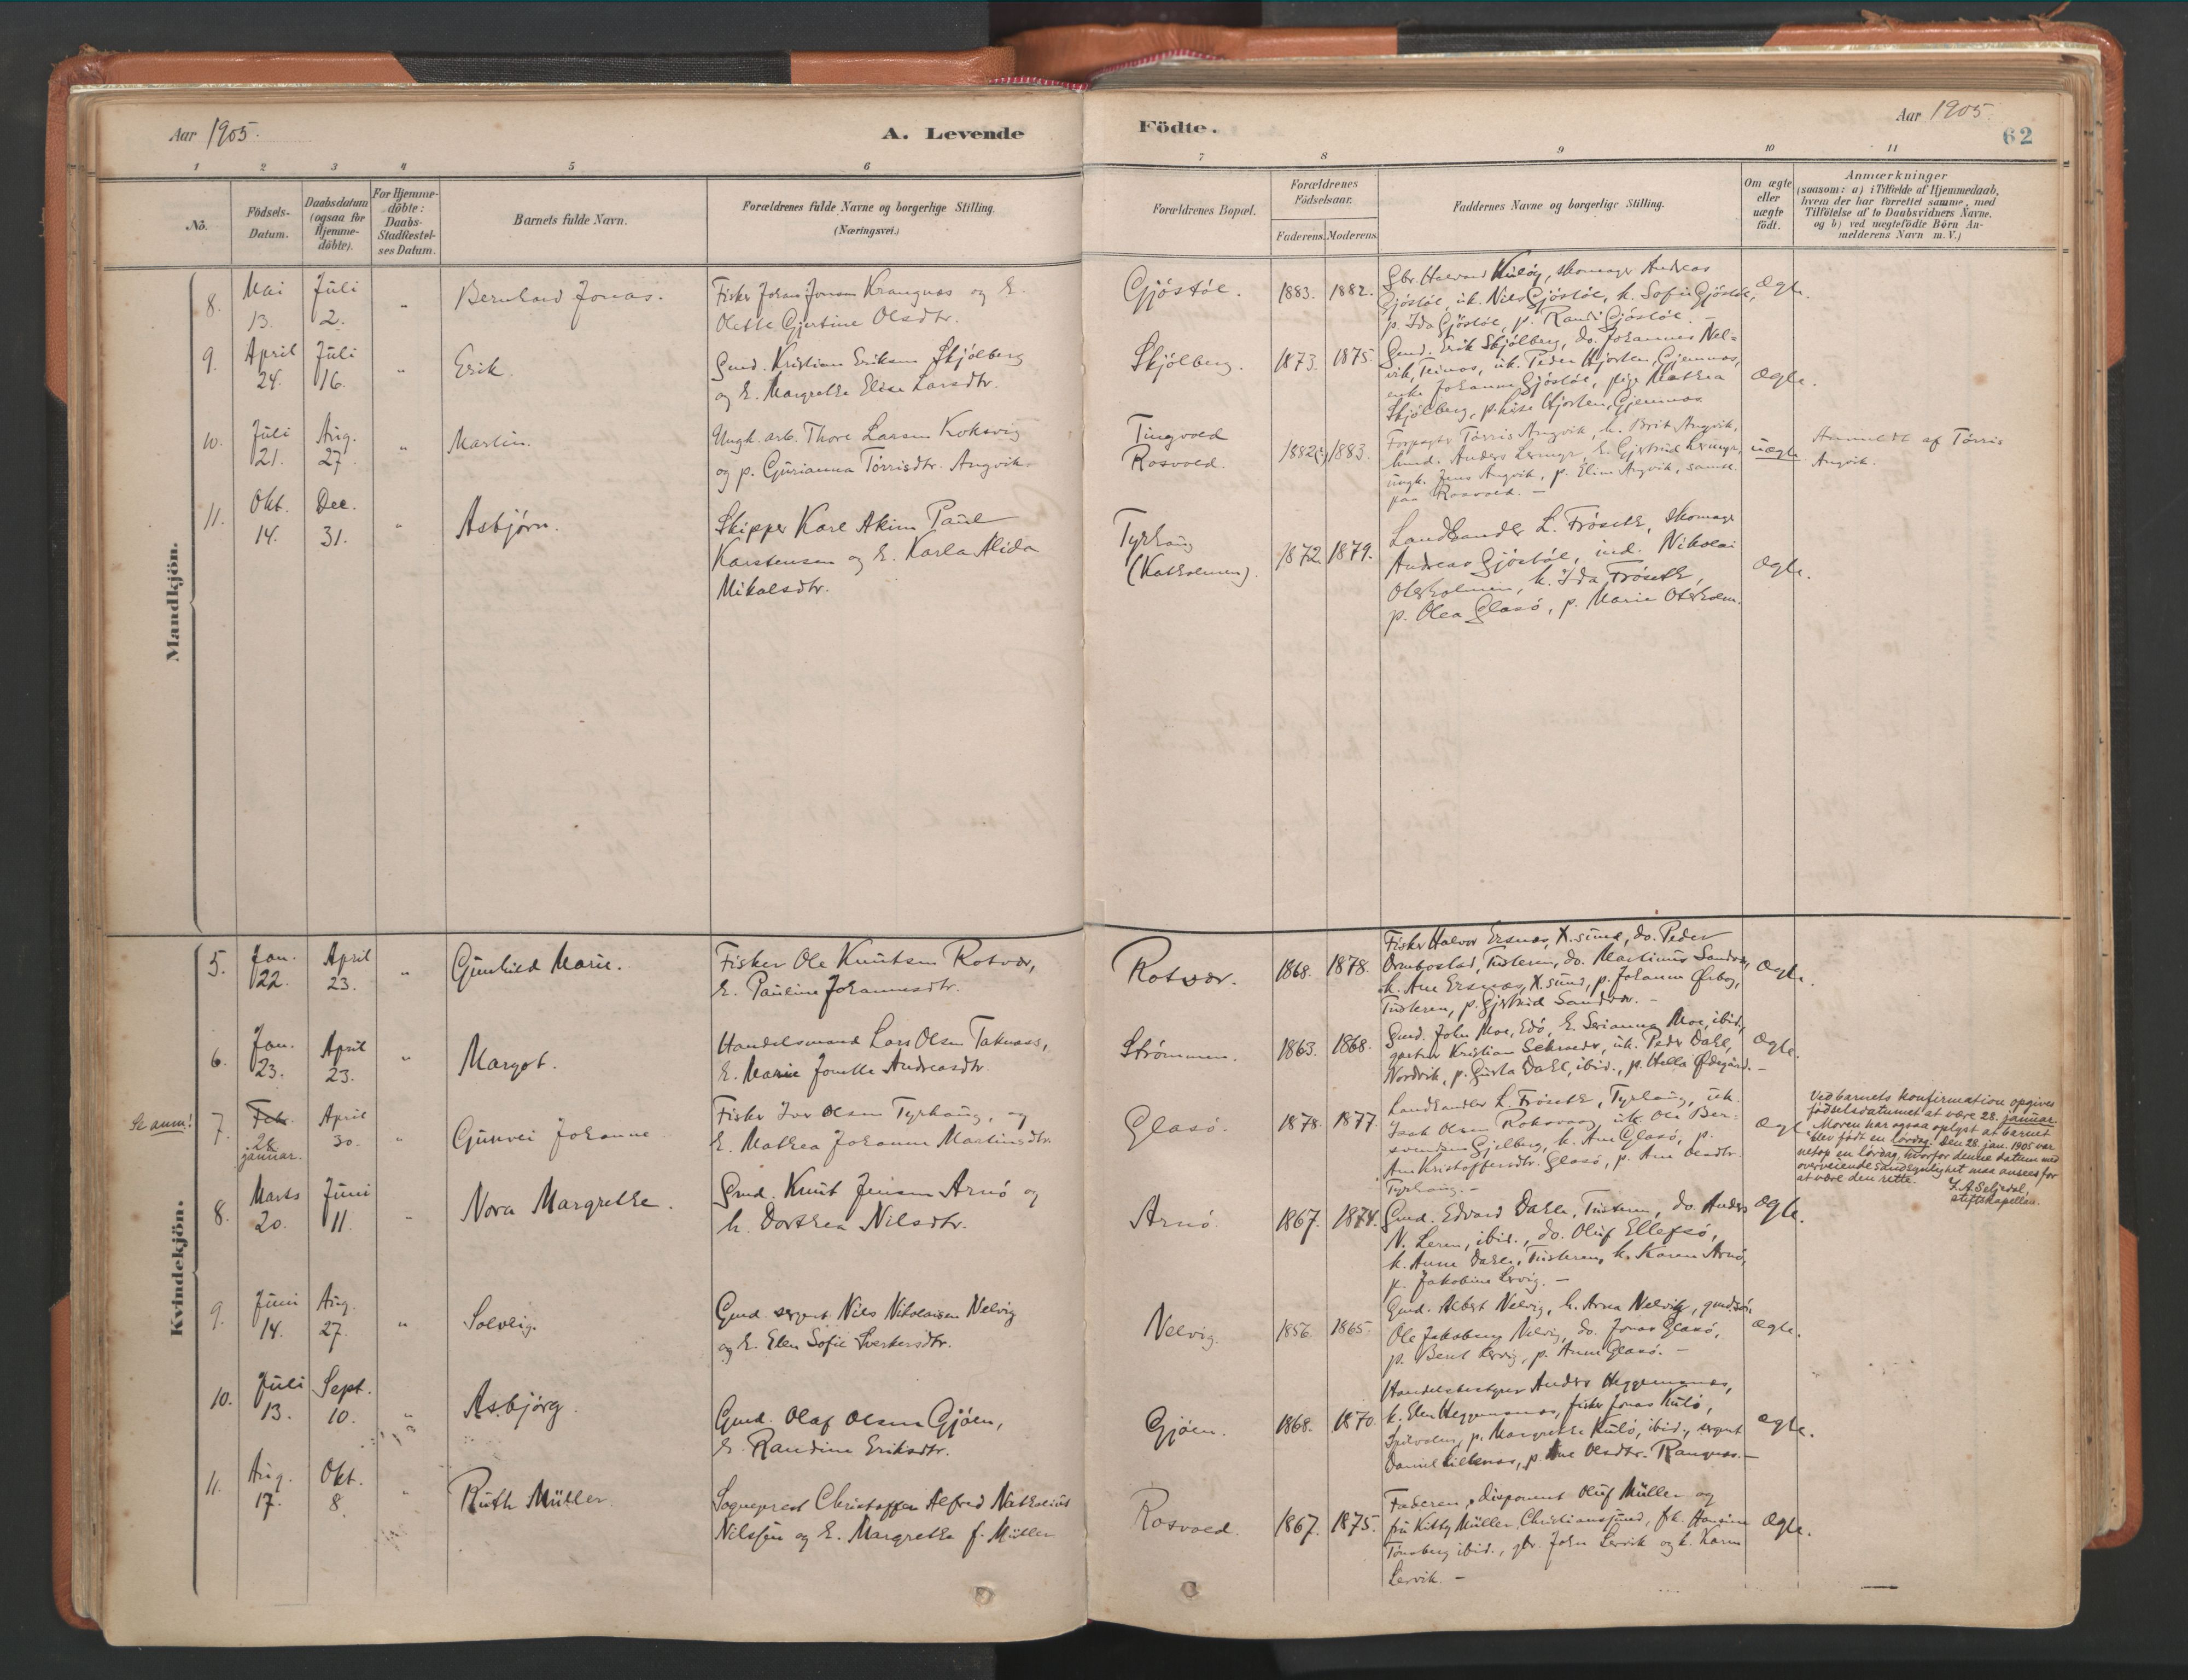 Aar 1905.
A. Levende
Födte.
Aar 1905.
62
1 2 3 4 5 6 7 8 9 10 11
No.
Födsels-
Datum.
Daabsdatum
(ogsaa for
Hjemme-
döbte).
For Hjemme-
döbte:
Daabs-
Stadfæstel-
ses Datum.
Barnets fulde Navn.
Forældrenes fulde Navne og borgerlige Stilling.
(Næringsvei.)
Forældrenes Bopæl.
Forældrenes
Födselsaar.
Faderens. Moderens.
Faddernes Navne og borgerlige Stilling.
Om ægte
eller
uægte
födt.
Anmærkninger
(saasom: a) i Tilfælde af Hjemmedaab,
hvem der har forrettet samme, med
Tilföielse af to Daabsvidners Navne.
og b) ved uægtefödte Börn An-
melderens Navn m. V.)
Mandkjön.
8. Mai 13. Juli 2. " Bernhard Jonas.
Fisker Johan Jonsen Krangnæs og E.
Olette Gjertine Olsdtr.
Gjöstöl. 1883. 1882.
Gbr. Halvard Kulöy, skomager Andreas
Gjöstöl, uk. Nils Gjöstöl, k. Sofie Gjöstöl,
p. Ida Gjöstöl, p. Randi Gjöstöl. –
Ægte.
9. April 24. Juli 16. " Erik.
Gmd. Kristian Eriksen Skjölberg
og E. Margrethe Elise Larsdtr.
Skjölberg. 1873. 1875.
Gmd. Erik Skjölberg, do. Johannes Nel-
vik, uk. Peder Hjorten, Gjemnæs,
enke Johanne Gjöstöl, pige Mathea
Skjölberg, p. Lise Hjorten, Gjemnæs.
Ægte.
10. Juli 21. Aug. 27. " Martin.
Ungk. arb. Thore Larsen Koksvig
og p. Gurianna Törrisdtr. Angvik.
Tingvold
Rosvold. 1882(?) 1883.
Forpagter Törris Angvik, k. Brit Angvik,
Anders Lermyr, E. Gjertrud Lermyr,
ungk. Jens Angvik, p. Eline Angvik, samtl.
paa Rosvold. –
uægte
Anmeldt af Törris
Angvik.
11. Okt. 14. Dec. 31. " Asbjörn.
Skipper Karl Akim Paul
Karstensen og E. Karla Alida
Mikalsdtr.
Tyrhaug
(Katholmen). 1872. 1879.
Landhandler L. Fröseth, skomager
Andreas Gjöstöl, ind. Nikolai
Oterholmen, k. Ida Fröseth,
p. Olea Glasö, p. Marie Oterholm.
Ægte.
Kvindekjön.
5. Jan. 22. April 23. " Gunhild Marie.
Fisker Ole Knutsen Rotvær,
E. Pauline Johannesdtr.
Rotvær. 1868. 1878.
Fisker Halvor Ersnæs, X.sund, do. Peder
Ormbostad, Tusteren, do. Martinus Sandvær,
k. Ane Ersnæs, X.sund, p. Johanne
Tusteren, p. Gjertrud Sandvær. –
Ægte.
6. Jan. 23. April 23. " Margot.
Handelsmand Lars Olsen Taknæs,
E. Marie Jonette Andreasdtr.
Strömmen. 1863. 1868.
Gmd. John Moe, Edö, E. Serianna Moe, ibid.,
Kristian Schröder, uk. Peder Dahl,
Nordvik, p. Gusta Dahl, ibid., p. Hella Ødegård. –
Ægte.
Se anm! 7. Feb. 28. januar. April 30. " Gunvei Johanne
Fisker Iver Olsen Tyrhaug, og
E. Mathea Johanne Martinsdtr.
Glasö. 1878. 1877.
Landhandler L. Fröseth, Tyrhaug, uk.
Isak Olsen Roksvaag, uk. Ole Ber-
Gjelberg, k. Ane Glasö, p.
Ane Kristoffersdtr. Glasö, p. Ane Olsdtr.
Tyrhaug. –
Ægte
Ved barnets konfirmation opgives
fødselsdatumet at være 28. januar.
Moren har ogsaa oplyst at barnet
blev født en lørdag. Den 28. jan. 1905 var
netop en lørdag, hvorfor denne datum med
overveiende sandsynlighet maa ansees for
at være den rette. I. A. Seljedal,
stiftskapellan.
8. Marts 20. Juni 11. " Nora Margrethe.
Gmd. Knut Jensen Arnö og
h. Dorthea Nilsdtr.
Arnö. 1867. 1874.
Gmd. Edvard Dahle, Tusteren, do. Anders
N. Leren, ibid., do. Oluf Ellefsö,
k. Anne Dahle, Tusteren, k. Karen Arnö,
p. Jakobine Lervig. –
Ægte.
9. Juni 14. Aug. 27. " Solveig.
Gmd. sergent Nils Nikolaisen Nelvig
og E. Elen Sofie Sverkersdtr.
Nelvig. 1856. 1865.
Gmd. Albert Nelvig, k. Arnea Nelvig, gmdsön
Ole Jakobsen Nelvig, do. Jonas Glasö,
p. Berit Lervig, p. Anne Glasö. –
Ægte.
10. Juli 13. Sept. 10. " Asbjörg.
Gmd. Olaf Olsen Gjöen,
E. Randine Eriksdtr.
Gjöen. 1868. 1870.
Handelsbestyrer Anders Heggemsnæs,
k. Elen Heggemsnæs, fisker Jonas Kulö,
p. Margrethe Kulö, ibid., sergent
Daniel Lillenæs, p. Ane Olsdtr. Rangnæs. –
Ægte.
11. Aug. 17. Okt. 8. " Ruth Müller.
Sogneprest Christoffer Alfred Nathalius
Nilssen og E. Margrethe f. Müller
Rosvold. 1867. 1875.
Faderen, disponent Oluf Müller og
fru Kitty Müller, Christianssund, frk. Hansine
Tönsberg ibid., gbr. John Lervik og k. Karen
Lervik. –
Ægte.